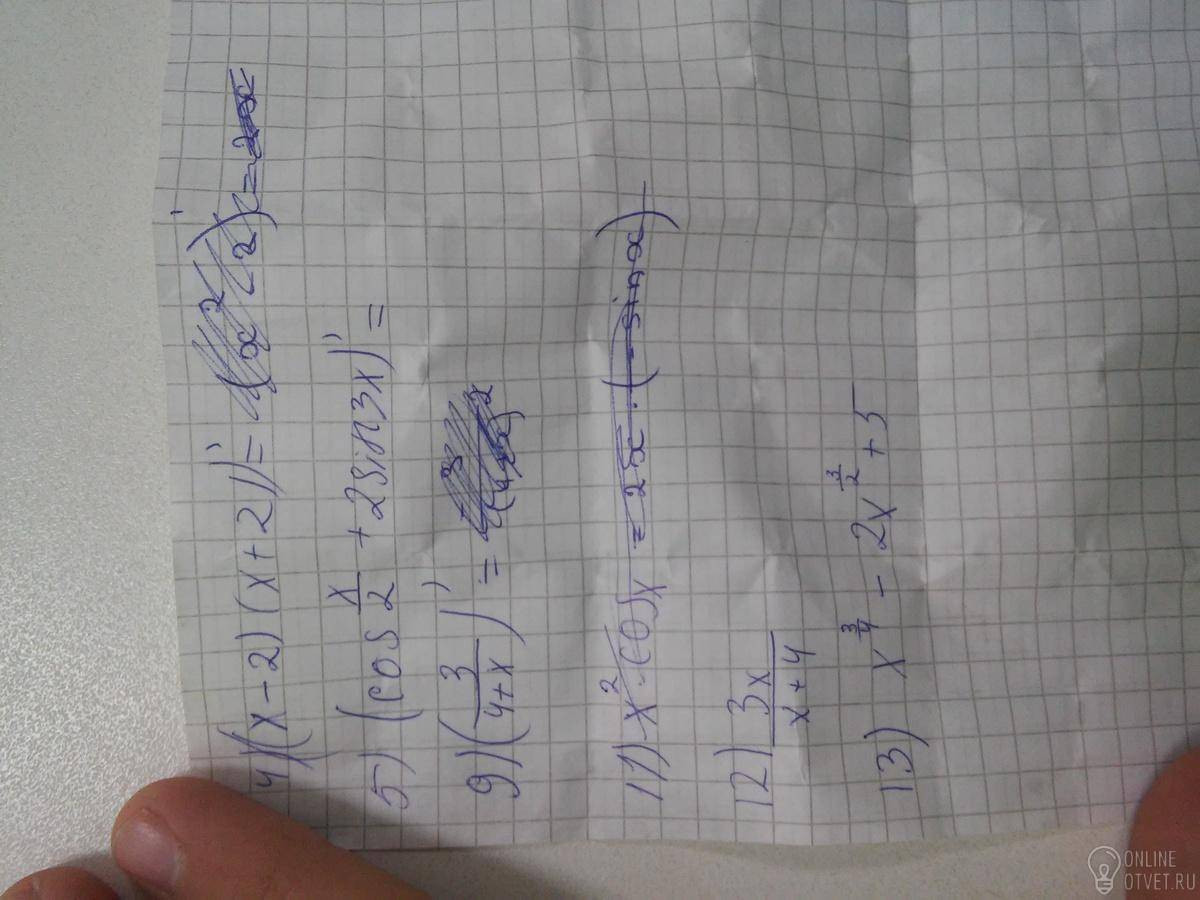 4) ((x-2)(x+2))' = (x²-2)' =
5) (cos x/2 + 2sin3x)' =
9) (3/(4+x))' =
11) x² · cosx = 2x · (-sinx)
12) 3x/(x+4)
13) x^(3/4) - 2x^(3/2) + 5
ONLINE
OTVET.RU